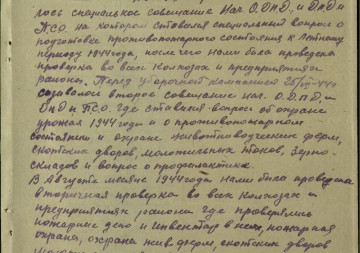 лось специальное совещание Нач. О.П.Д. и ДПД и
П.С.О. на котором ставился специальный вопрос о
подготовке противопожарного состояния к летнему
периоду 1944 года, после чего нами была проведена
проверка во всех колхозах и предприятиях
района. Перед уборочной кампанией 25/VII-44г.
созывалось второе совещание нач. О.П.Д. –
ДПД и П.С.О. где ставился вопрос об охране
урожая 1944 года и о противопожарном
состоянии и охране животноводческих ферм,
скотских дворов, молотильных токов, зерно-
складов и вопрос о профилактике.
В Августе месяце 1944 года нами была проведена
вторичная проверка во всех колхозах и
предприятиях района где проверялись
пожарные депо и инвентарь в них, пожарная
охрана, охрана жив. ферм, скотских дворов